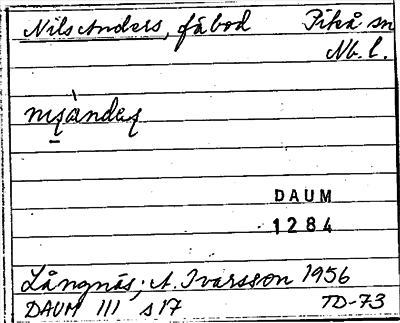 Nils Anders, fäbod Piteå sn
Nb. l.
DAUM
1284
Långnäs; A. Ivarsson 1956
DAUM 111 s17 TD-73